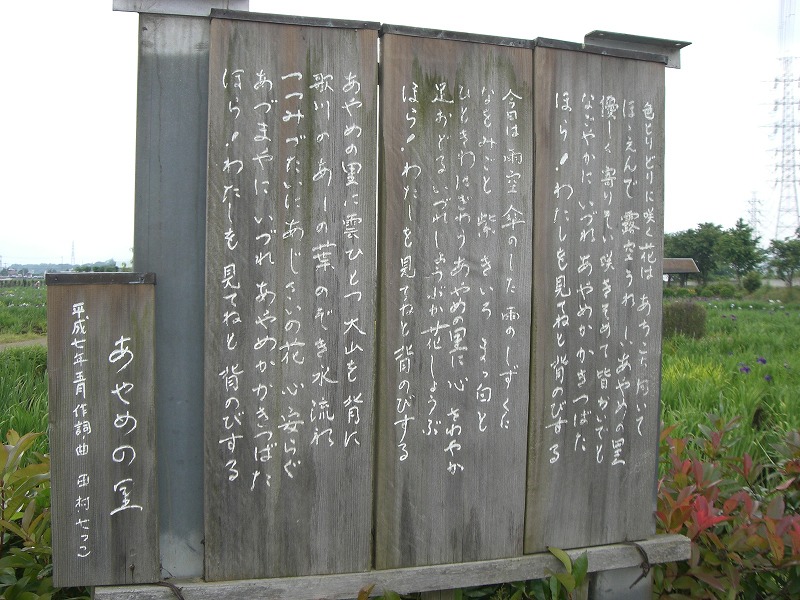 色とりどりに咲く花は あちこち向いて
ほゝえんで 露空うれしいあやめの里
優しく寄りそい咲きそめて皆かいでと
なごやかに いづれあやめかかきつばた
ほら！わたしも見てねと背のびする
今日は雨空 傘のした 雨のしずくに
なをみごと 紫 きいろ まっ白と
ひときわにぎわうあやめの里に心 さわやか
足おどる いづれしょうぶか花しょうぶ
ほら！わたしを見てねと背のびする
あやめの里に雲ひとつ 大山を背に
歌川のあしの葉のぞき水流れ
つつみづたいにあじさいの花 心安らぐ
あづまやに いづれあやめかかきつばた
ほら！わたしも見てねと背のびする
あやめの里
平成七年五月 作詞曲 田村せつこ